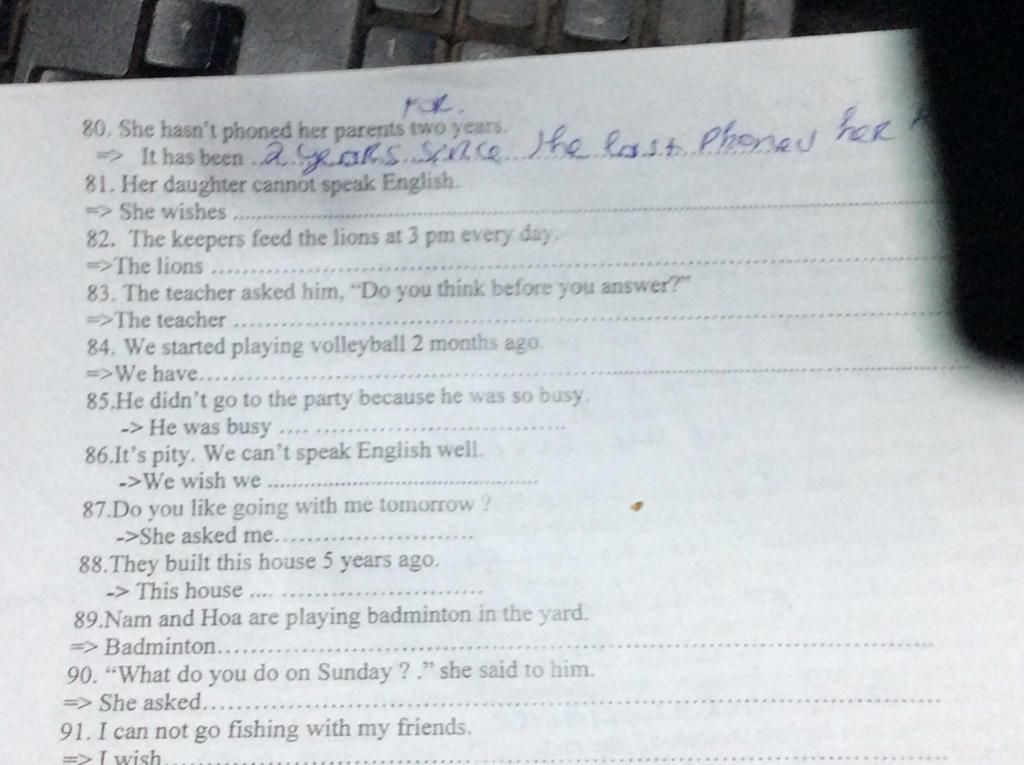 For.
80. She hasn't phoned her parents two years.
=> It has been ..2 years since the last phoned her
81. Her daughter cannot speak English.
=> She wishes ..........
82. The keepers feed the lions at 3 pm every day.
=>The lions ..........
83. The teacher asked him, “Do you think before you answer?”
=>The teacher ..........
84. We started playing volleyball 2 months ago.
=>We have..........
85.He didn't go to the party because he was so busy.
-> He was busy ..........
86.It's pity. We can't speak English well.
->We wish we ..........
87.Do you like going with me tomorrow ?
->She asked me..........
88.They built this house 5 years ago.
-> This house ..........
89.Nam and Hoa are playing badminton in the yard.
=> Badminton..........
90. “What do you do on Sunday ? .” she said to him.
=> She asked..........
91. I can not go fishing with my friends.
=> I wish..........